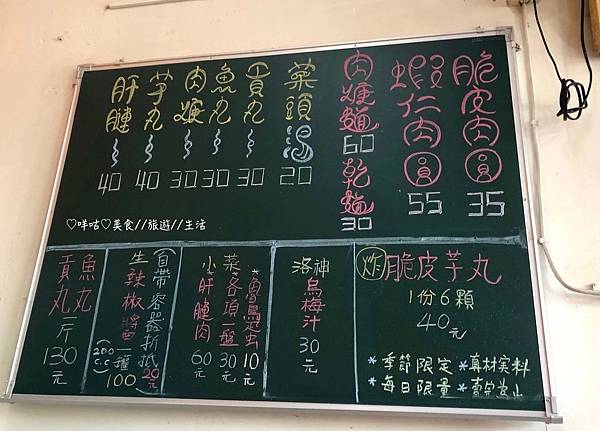 脆皮肉圓 35
蝦仁肉圓 55
肉焿麵 60
乾麵 30
菜頭湯 20
貢丸〻 30
魚丸〻 30
肉焿〻 30
芋丸〻 40
肝腱〻 40
♡咩咕♡美食//旅遊//生活
炸 脆皮芋丸
1份6顆
40元
*季節限定 *真材實料
*每日限量 *賣完為止
洛神
烏梅汁
30元
10元
小菜各項一盤 30元
肝腱肉 60元
(自帶容器折抵20元)
生辣椒醬一罐 100
(200c.c)
魚丸
貢丸
一斤
130元